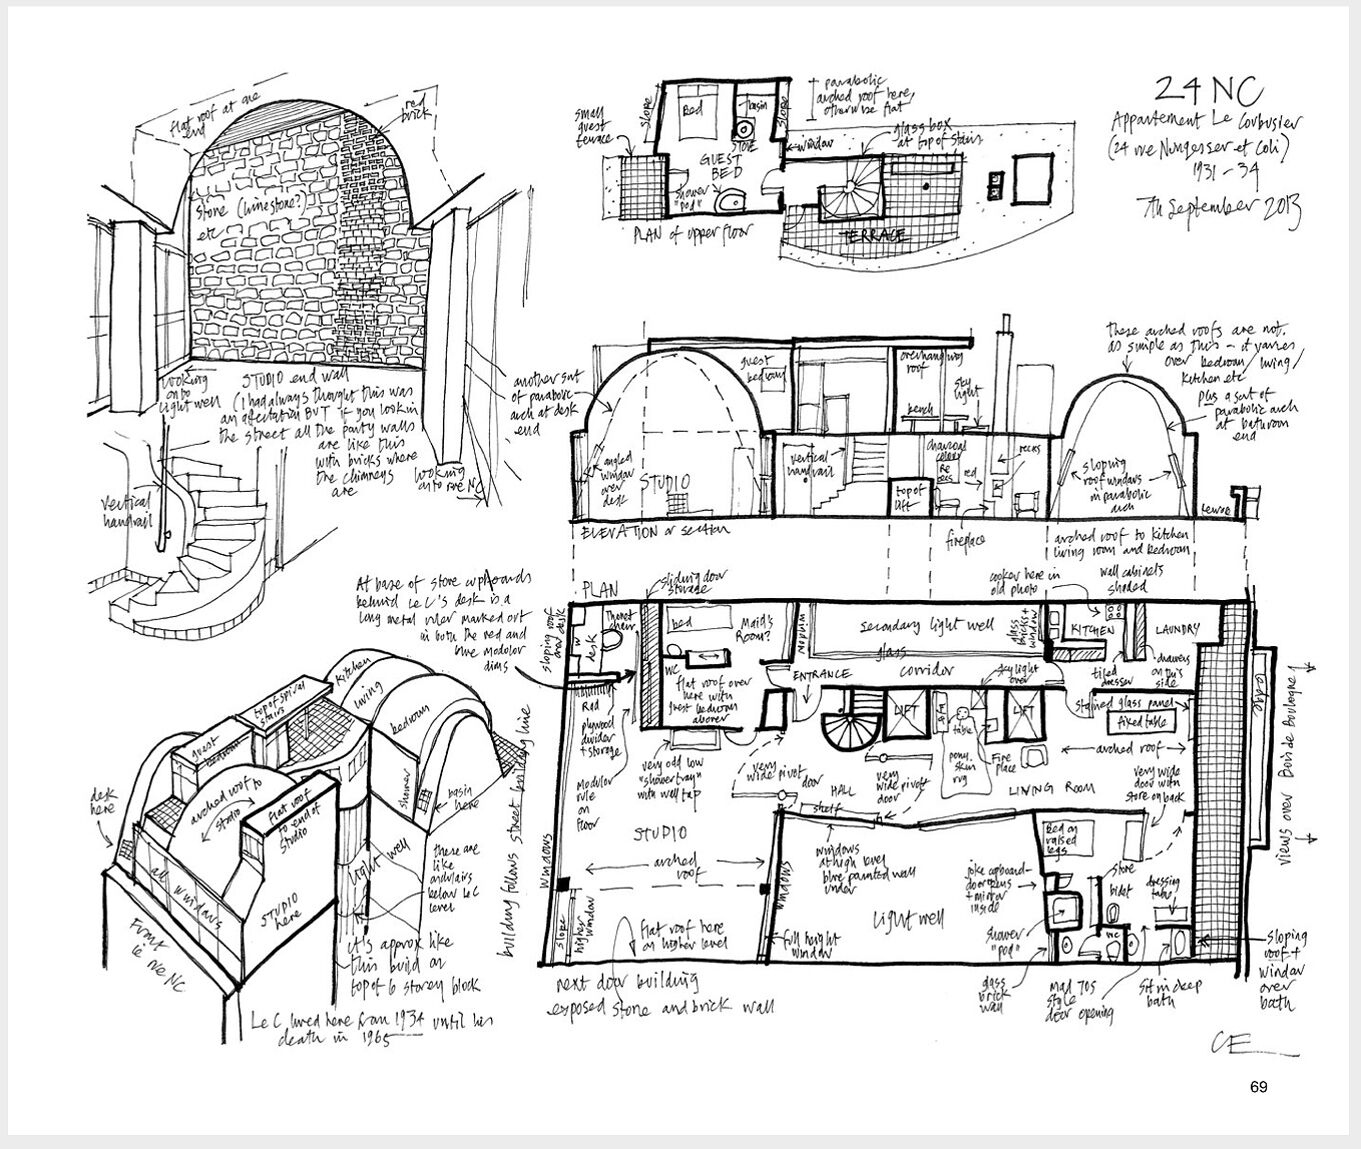 24 NC
Appartement Le Corbusier
(24 rue Nungesser et Coli)
1931 - 34
7th September 2013
flat roof at one
end
red
brick
stone (limestone?)
etc
looking
on to
light well
STUDIO end wall
(I had always thought this was
an affectation BUT if you look in
the street all the party walls
are like this
with bricks where
the chimneys
are
looking
on to rue NC
vertical
handrail
small
guest
terrace
slope
Bed
basin
slope
STORE
GUEST
BED
shower
"pod"
PLAN of upper floor
parabolic
arched roof here,
otherwise flat
window
glass box
at top of stairs
TERRACE
another sort
of parabolic
arch at desk
end
angled
window
over
desk
STUDIO
guest
bedroom
overhanging
roof
sky
light
bench
vertical
handrail
charcoal
top of
lift
red
fireplace
ELEVATION or section
these arched roofs are not
as simple as this - it varies
over bedroom / living /
kitchen etc
plus a sort of
parabolic arch
at bathroom
end
sloping
roof windows
in parabolic
arch
arched roof to kitchen
living room and bedroom
PLAN
sliding door
storage
cooker here in
old photo
wall cabinets
shaded
At base of store cupboards
behind Le C's desk is a
long metal ruler marked out
in both the red and
blue modulor
dims
sloping roof
and desk
desk
Thonet
chair
bed
Maid's
Room?
WC
flat roof over
here with
guest bedroom
above
window
secondary light well
glass
corridor
ENTRANCE
glass
bricks +
window
KITCHEN
LAUNDRY
skylight
over
tiled
dresser
drawers
on this
side
Red
plywood
divider
+ storage
modulor
rule
on
floor
very odd low
"shower tray"
with wall tap
very
wide pivot
door
HALL
shelf
LIFT
very
wide pivot
door
sofa
table
pony
skin
rug
LIFT
Fire
place
LIVING ROOM
stained glass panel
fixed table
arched roof
very wide
door with
store on back
ledge
views over Bois de Boulogne
STUDIO
arched
roof
windows
windows
windows
at high level
blue painted wall
under
Light well
Bed on
raised
legs
joke cupboard -
door opens
+ mirror
inside
store
bidet
dressing
table
shower
"pod"
WC
slope
higher
window
flat roof here
on higher level
full height
window
glass
brick
wall
mad 70s
style
door opening
sit in deep
bath
sloping
roof +
window
over
bath
building follows street building line
next door building
exposed stone and brick wall
kitchen
living
bedroom
top of spiral
stairs
guest
bedroom
desk
here
arched roof to
studio
flat roof
to end of
studio
shower
basin
here
all windows
STUDIO
here
light well
these are
like
below Le C
level
Front
ie rue NC
it's approx like
this build on
top of 6 storey block
Le C lived here from 1934 until his
death in 1965
CE
69